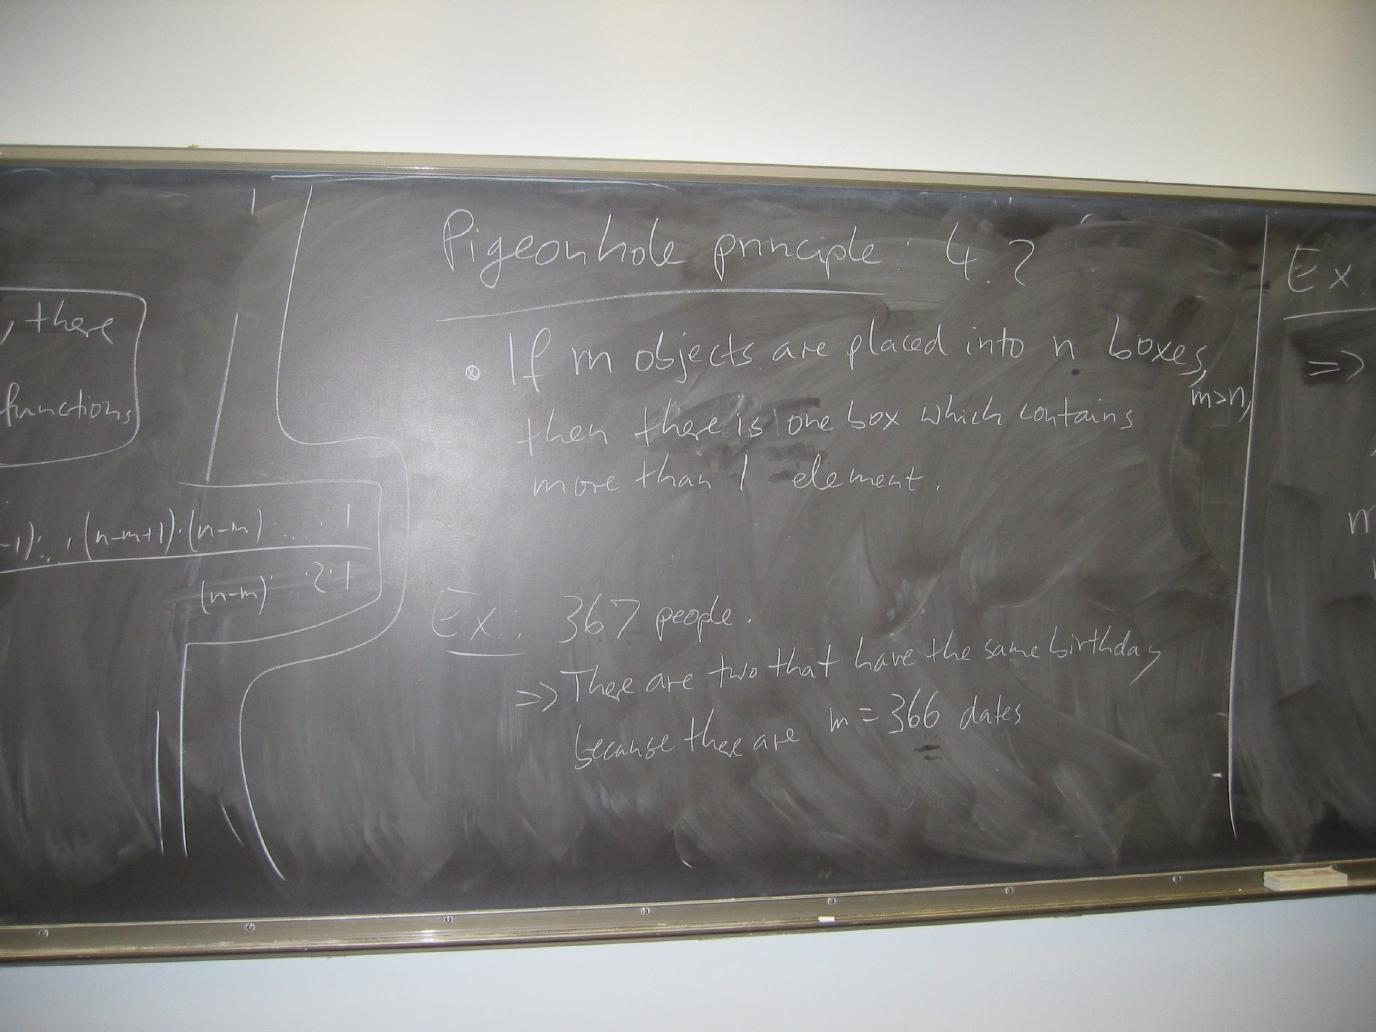 , there
functions,
-1)·..·(n-m+1)·(n-m)·...·1
(n-m)· ·2·1
Pigeonhole principle: 4.2
• If m objects are placed into n boxes,
m>n,
then there is one box which contains
more than 1 element.
Ex.: 367 people.
=> There are two that have the same birthday
because there are m = 366 dates
Ex
=>
m